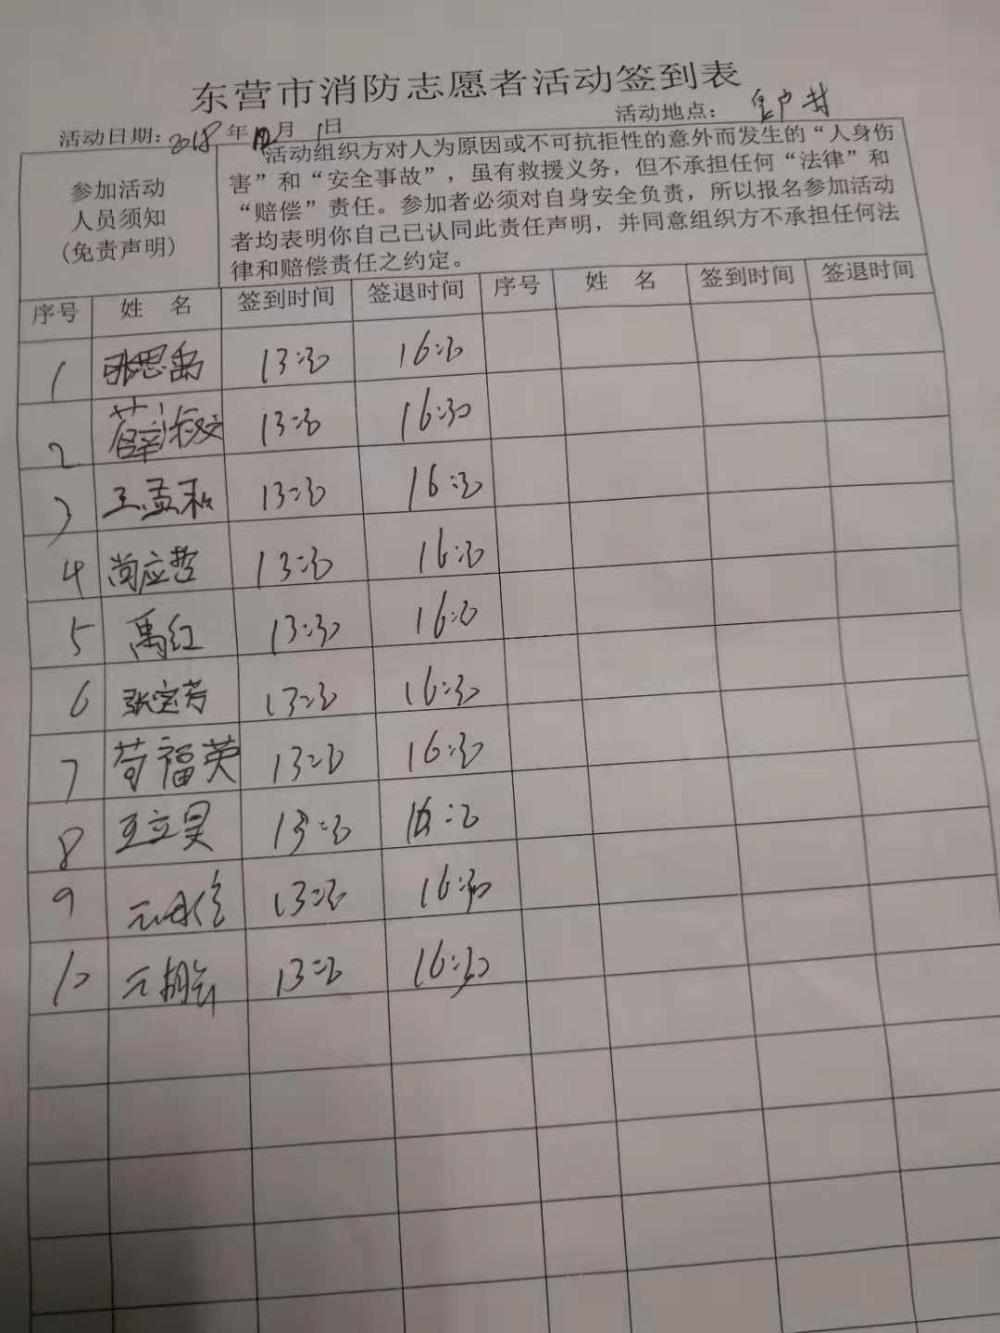 东营市消防志愿者活动签到表
活动日期：2018年12月1日 活动地点：
参加活动
人员须知
(免责声明)
活动组织方对人为原因或不可抗拒性的意外而发生的“人身伤
害”和“安全事故”，虽有救援义务，但不承担任何“法律”和
“赔偿”责任。参加者必须对自身安全负责，所以报名参加活动
者均表明你自己已认同此责任声明，并同意组织方不承担任何法
律和赔偿责任之约定。
序号 姓 名 签到时间 签退时间 序号 姓 名 签到时间 签退时间
1 张思禹 13:30 16:30
2 薛淑文 13:30 16:30
3 王孟和 13:30 16:30
4 尚应哲 13:30 16:30
5 禹红 13:30 16:30
6 张宝芳 13:30 16:30
7 苟福英 13:30 16:30
8 王立昊 13:30 16:30
9 13:30 16:30
10 13:30 16:30